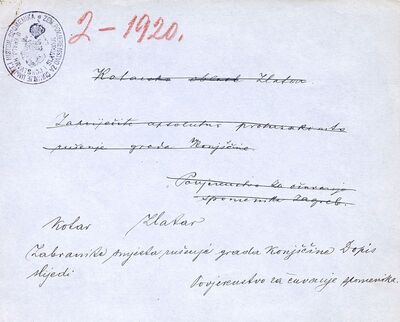 2-1920.
Kotarska oblast Zlatar
Zapriječite apsolutno protuzakonito
rušenje grada Konjščine
Povjerenstvo za čuvanje
spomenika Zagreb.
Kotar Zlatar
Zabranite smjesta rušenje grada Konjščine Dopis
slijedi
Povjerenstvo za čuvanje spomenika.